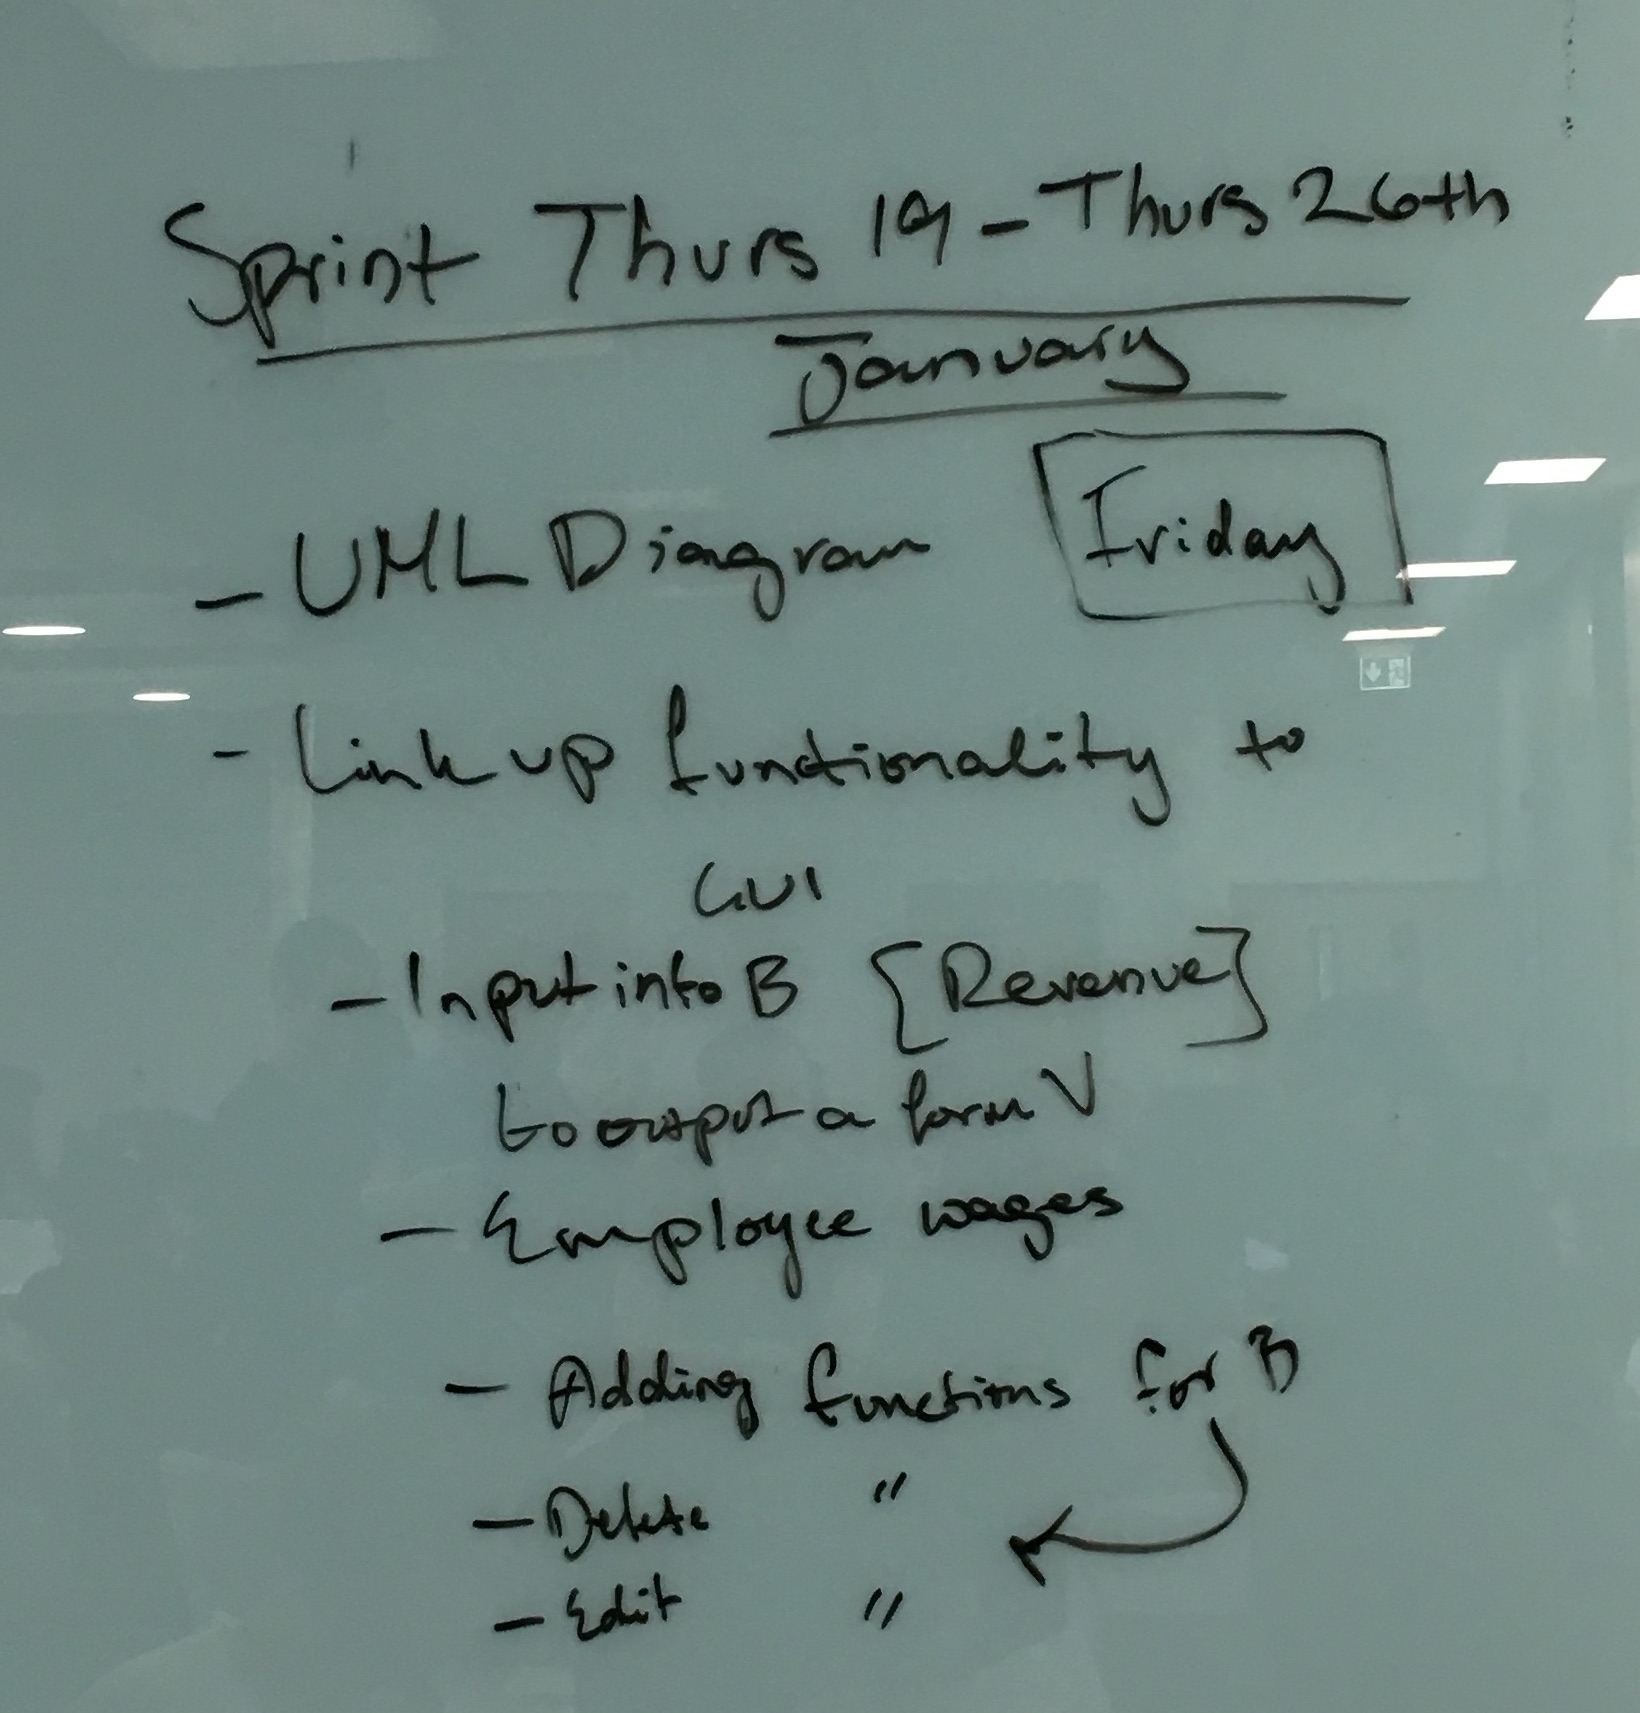 Sprint Thurs 19 - Thurs 26th
January
- UML Diagram Friday
- Link up functionality to
GUI
- Input into B [Revenue]
to output a form V
- Employee wages
- Adding functions for B
- Delete "
- Edit "